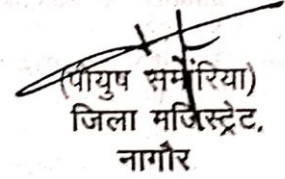 (पीयुष समेंरिया)
जिला मजिस्ट्रेट,
नागौर